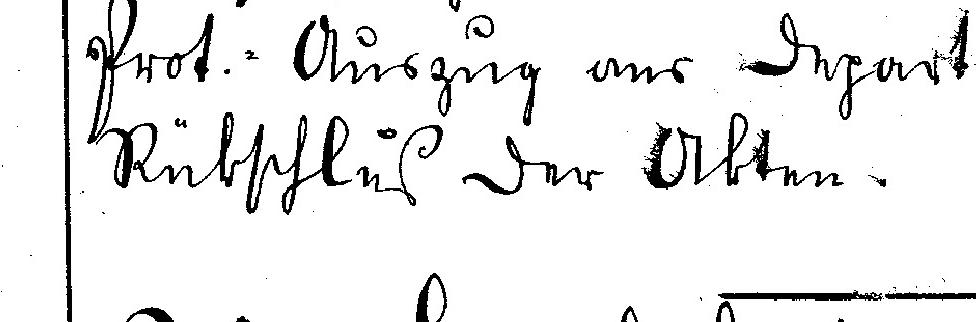 Prot.- Auszug ans Depart
Rückschluß der Akten.